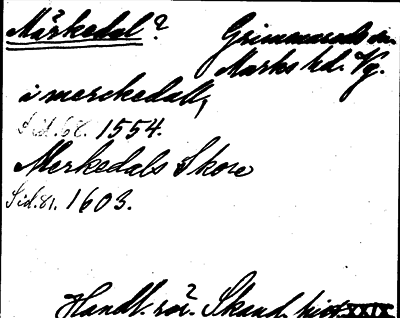 Märkedal? Grimmareds sn.
Marks hd. Vg.
i merckedall,
Sid. 68. 1554.
Merkedals Skore
Sid. 81. 1603.
Handl. rör. Skand. hist. XXIX